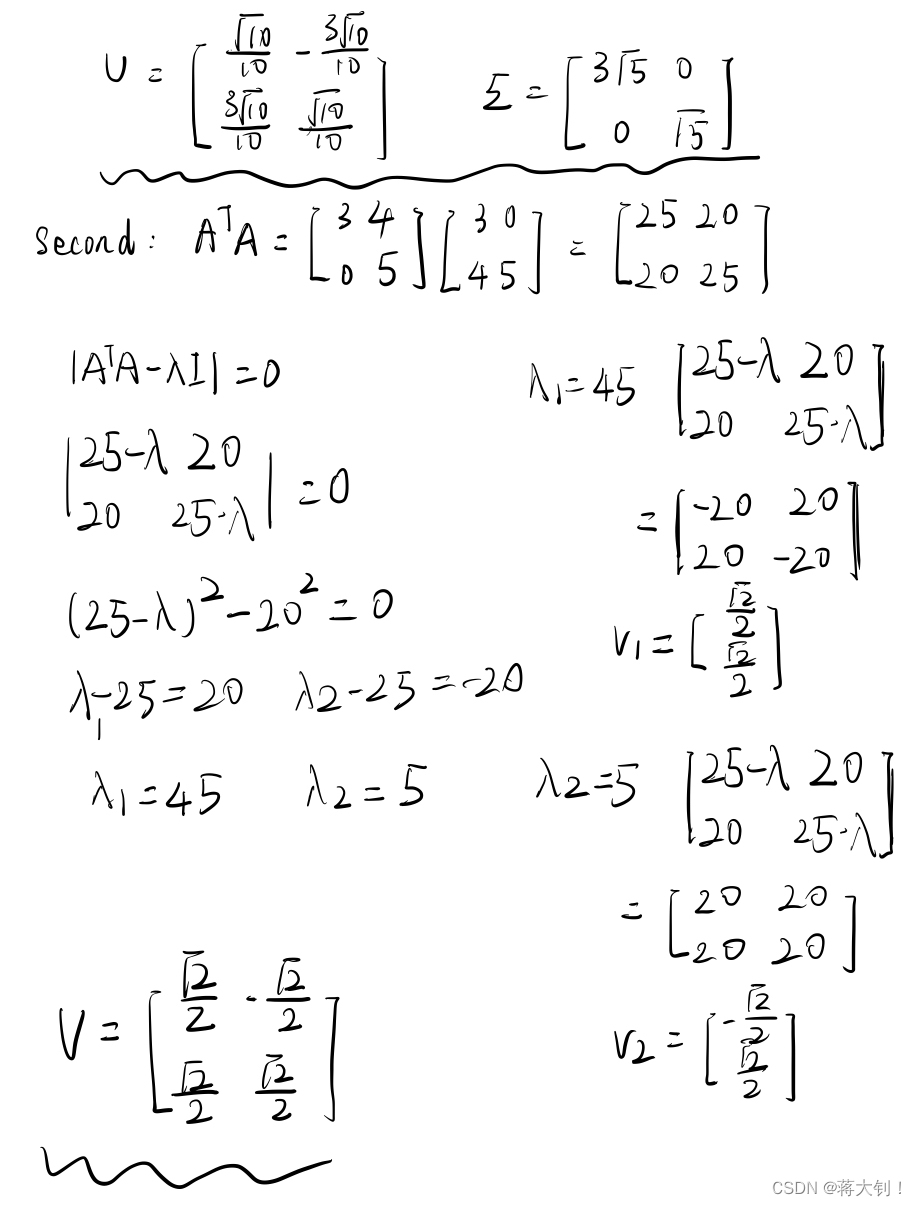 U = [ √10/10 -3√10/10 ; 3√10/10 √10/10 ] Σ = [ 3√5 0 ; 0 √5 ]
second: AᵀA = [ 3 4 ; 0 5 ] [ 3 0 ; 4 5 ] = [ 25 20 ; 20 25 ]
|AᵀA-λI| = 0
| 25-λ 20 ; 20 25-λ | = 0
(25-λ)² - 20² = 0
λ₁-25 = 20 λ2-25 = -20
λ₁ = 45 λ2 = 5
λ₁ = 45 [ 25-λ 20 ; 20 25-λ ]
= [ -20 20 ; 20 -20 ]
v₁ = [ √2/2 ; √2/2 ]
λ2 = 5 [ 25-λ 20 ; 20 25-λ ]
= [ 20 20 ; 20 20 ]
v2 = [ -√2/2 ; √2/2 ]
V = [ √2/2 -√2/2 ; √2/2 √2/2 ]
CSDN @蒋大钊！